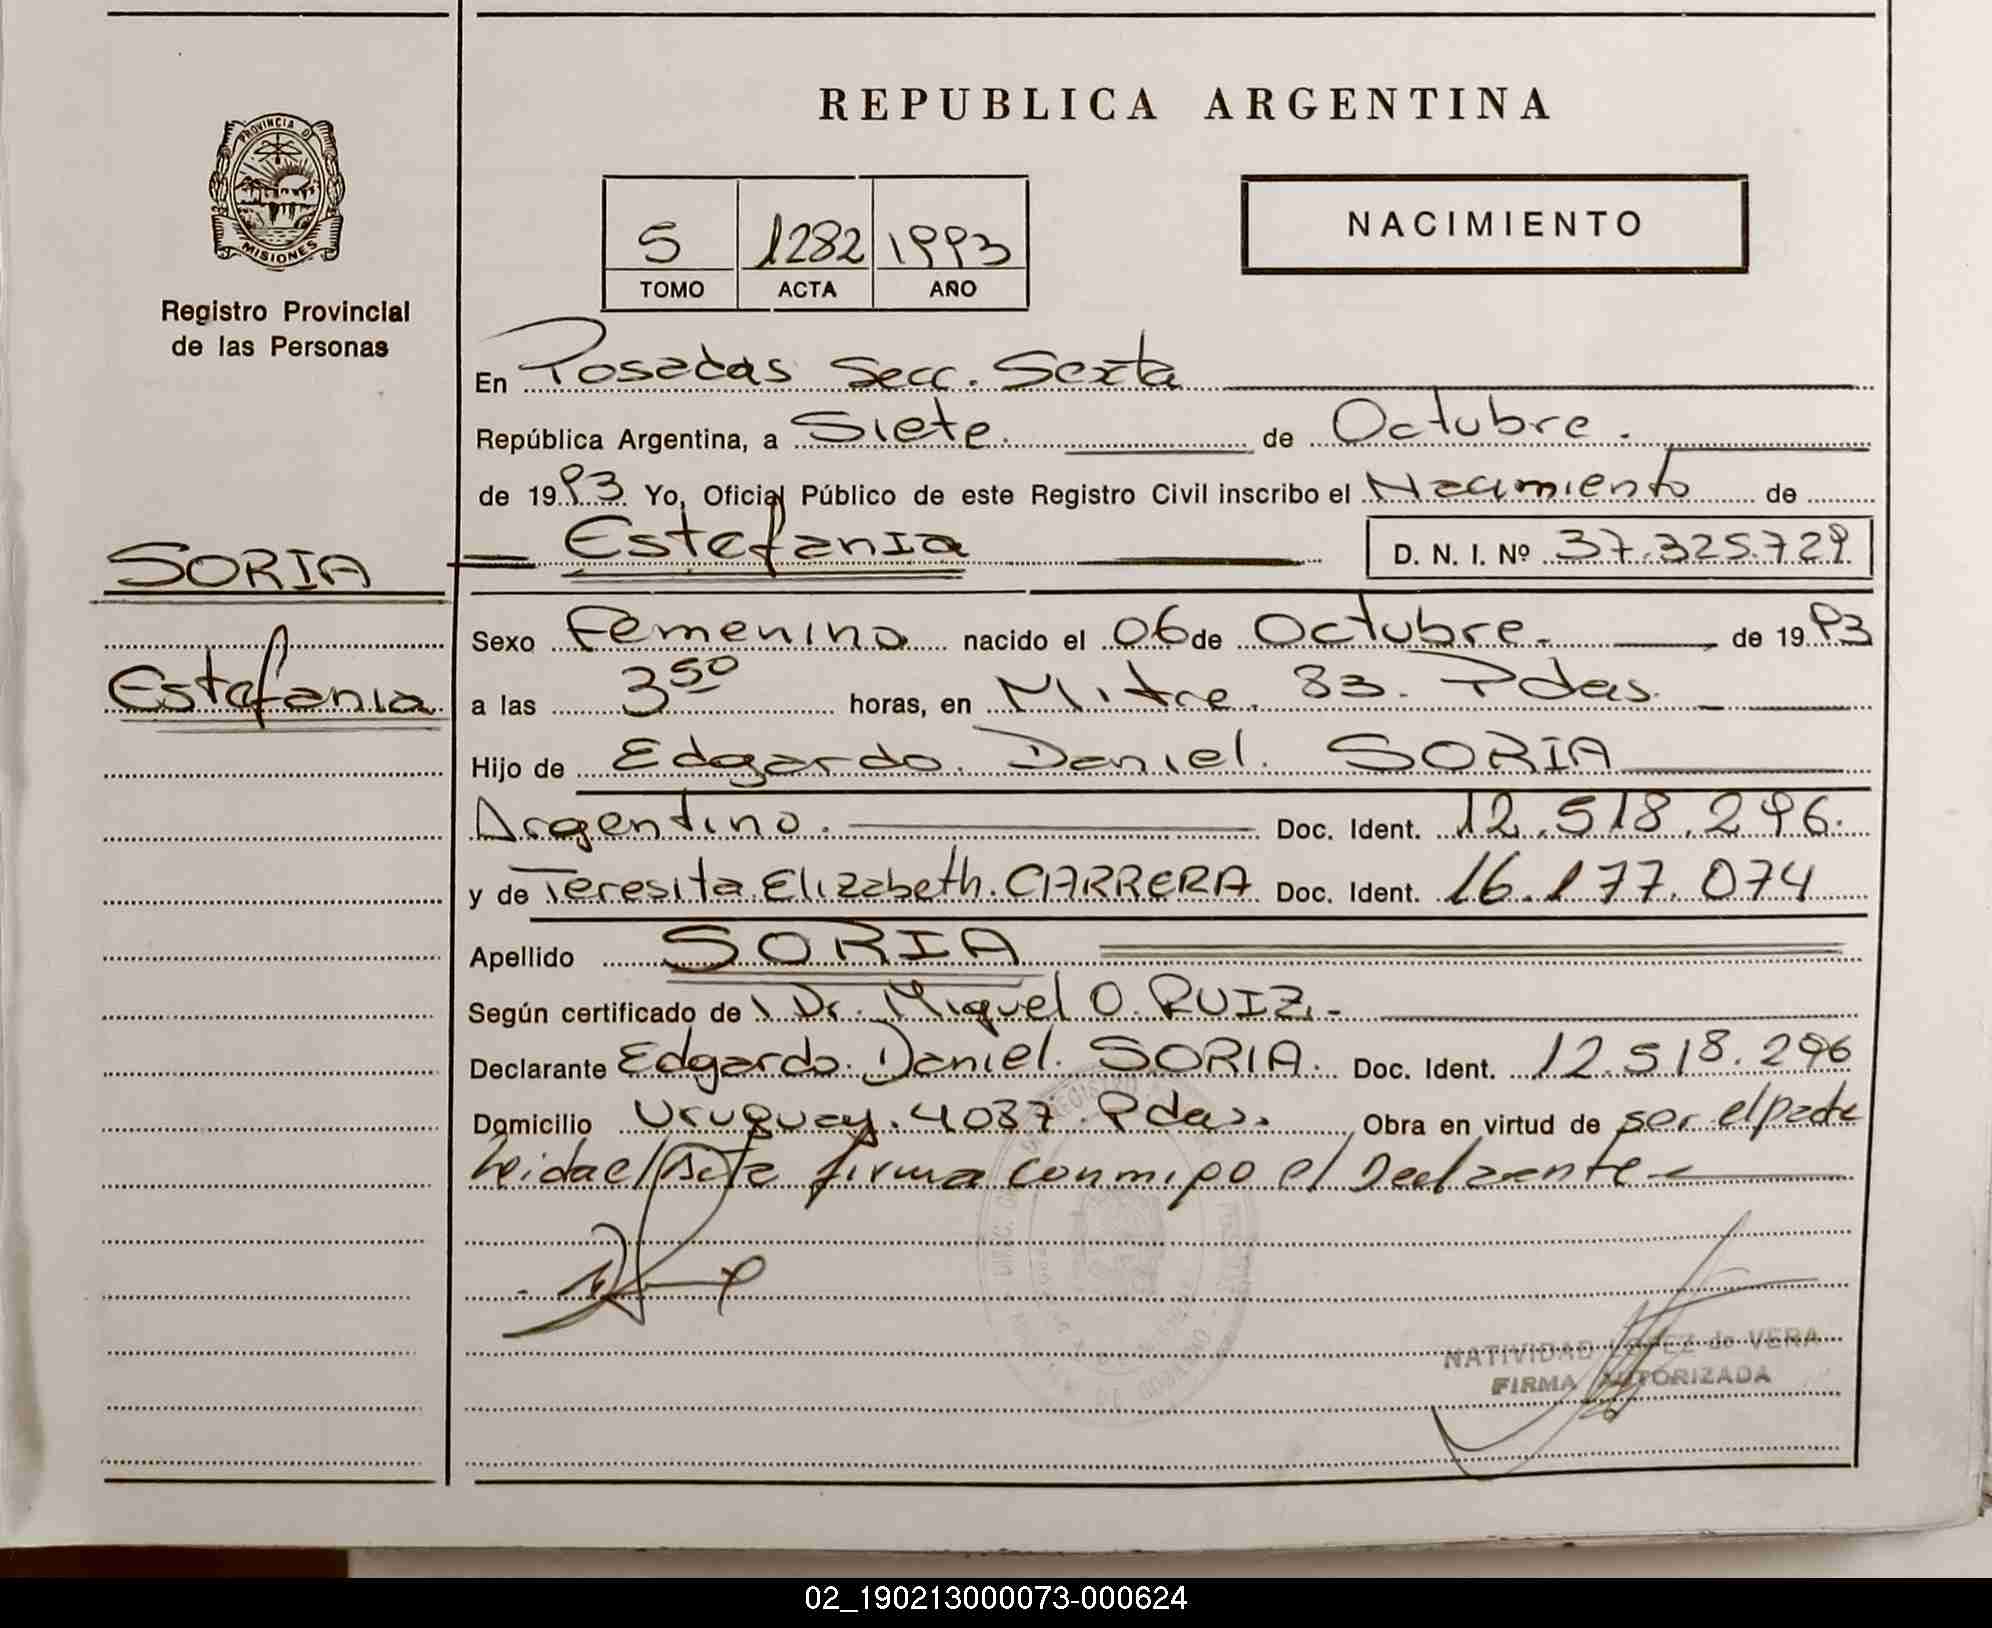 REPUBLICA ARGENTINA
PROVINCIA DE
MISIONES
Registro Provincial
de las Personas
NACIMIENTO
5 1282 1993
TOMO ACTA AÑO
En Posadas Secc. Sexta
República Argentina, a Siete. de Octubre.
de 1993 Yo, Oficial Público de este Registro Civil inscribo el Nacimiento de
Estefania D. N. I. Nº 37.325.729
SORIA
Estefania
Sexo Femenino nacido el 06 de Octubre.- de 1993
a las 3 50 horas, en Mitre. 83. Pdas.
Hijo de Edgardo. Daniel. SORIA
Argentino. Doc. Ident. 12.518.296.
y de Teresita. Elizabeth. CARRERA Doc. Ident. 16.177.074
Apellido SORIA
Según certificado de Dr. Miguel O. RUIZ.-
Declarante Edgardo. Daniel. SORIA. Doc. Ident. 12.518.296
Domicilio Uruguay. 4037. Pdas. Obra en virtud de ser el padre
Leida el Acta firma conmigo el Declarante-
NATIVIDAD LOPEZ de VERA
FIRMA AUTORIZADA
02_190213000073-000624